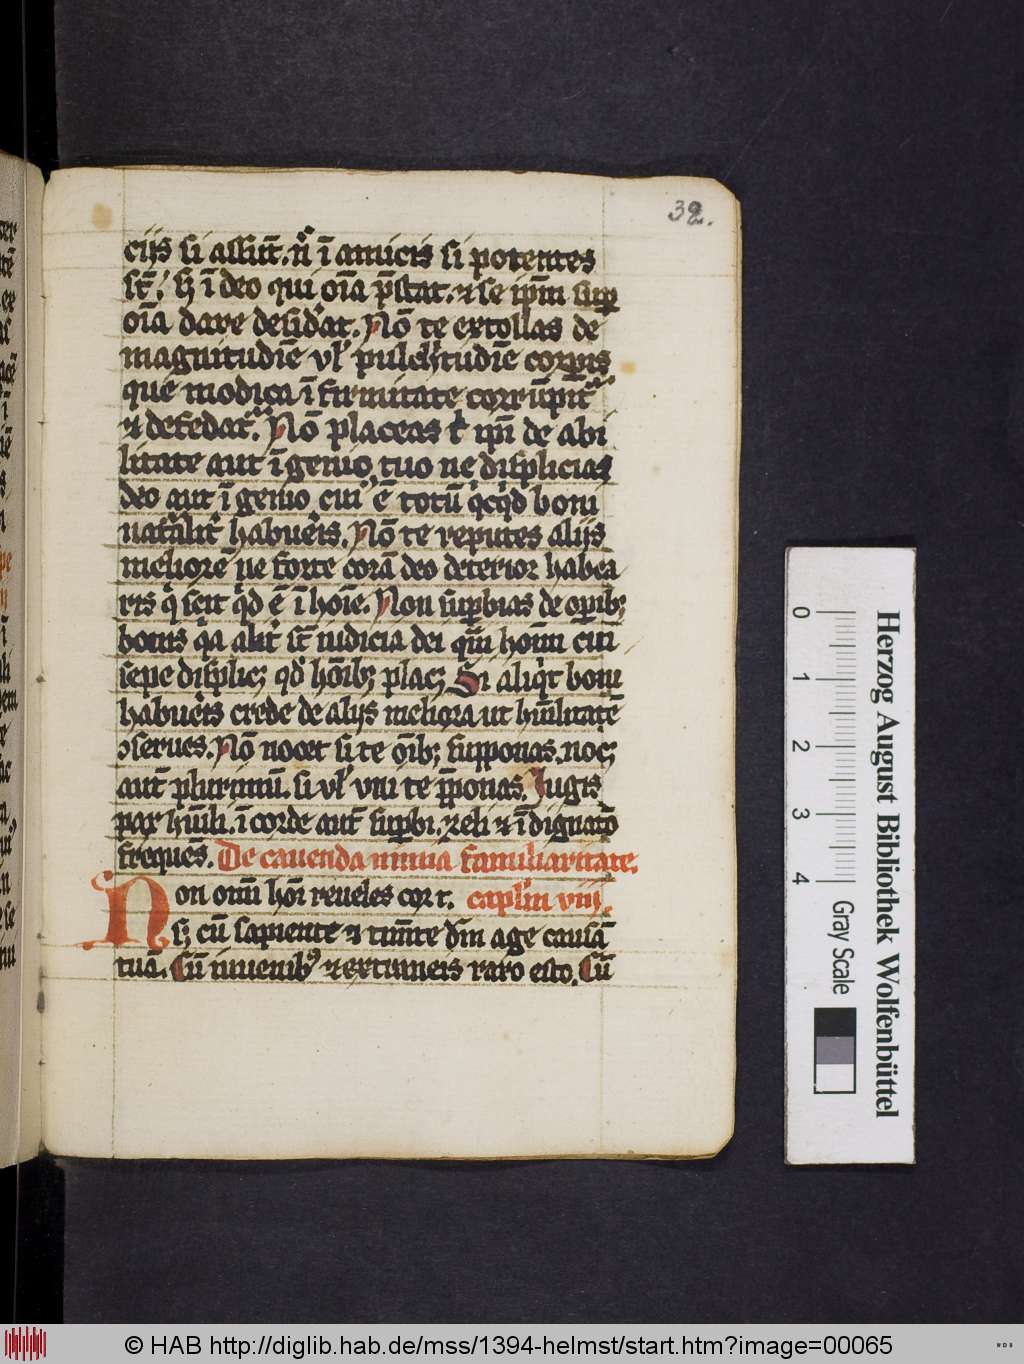 32.
cijs si assūt. n̄ ī amicis si potentes
st̄. sꝫ ī deo qui oīa p̄stat. ⁊ se ip̄m suꝑ
oīa dare desid̕at. Nō te extollas de
magnitudīe vl̕ pulch̕tudīe corꝑis
que modica īfirmitate corrūpit᷑
⁊ defedat᷑. Nō placeas t̕ ip̄i de abi
litate aut īgenio tuo ne displicias
deo aut īgenio cui᷒ ē totū q̇cq̇d boni
nat᷑alit̕ habu̕eis. Nō te reputes alijs
meliorē ne forte corā deo deterior habea
ris q̇ scit q̇d ē ī hoīe. Non suꝑbias de oꝑibꝫ
bonis q̇a alit̕ st̄ iudicia dei q̄m hoīm cui
sepe displicꝫ qd̕ hōībꝫ placꝫ Si aliq̇t boni
habu̕eis crede de alijs meliora ut hūilitatē
ꝯserues. Nō nocet si te oībꝫ supponas. nocꝫ
aut̄ plurimū. si vl̕ vni te p̄ponas. Jugis
pax hūili. ī corde aut̄ suꝑbi. ȥeli ⁊ īdignatō
frequēs. De cauenda nimia familiaritate.
Non omī hoī reueles cor t. capl̕m viij.
sꝫ cū sapiente ⁊ timēte dm̄ age causā
tuā. Cū iuuenibꝰ ⁊ extraneis raro esto. Cū
0
1
2
3
4
Gray Scale
Herzog August Bibliothek Wolfenbüttel
© HAB http://diglib.hab.de/mss/1394-helmst/start.htm?image=00065